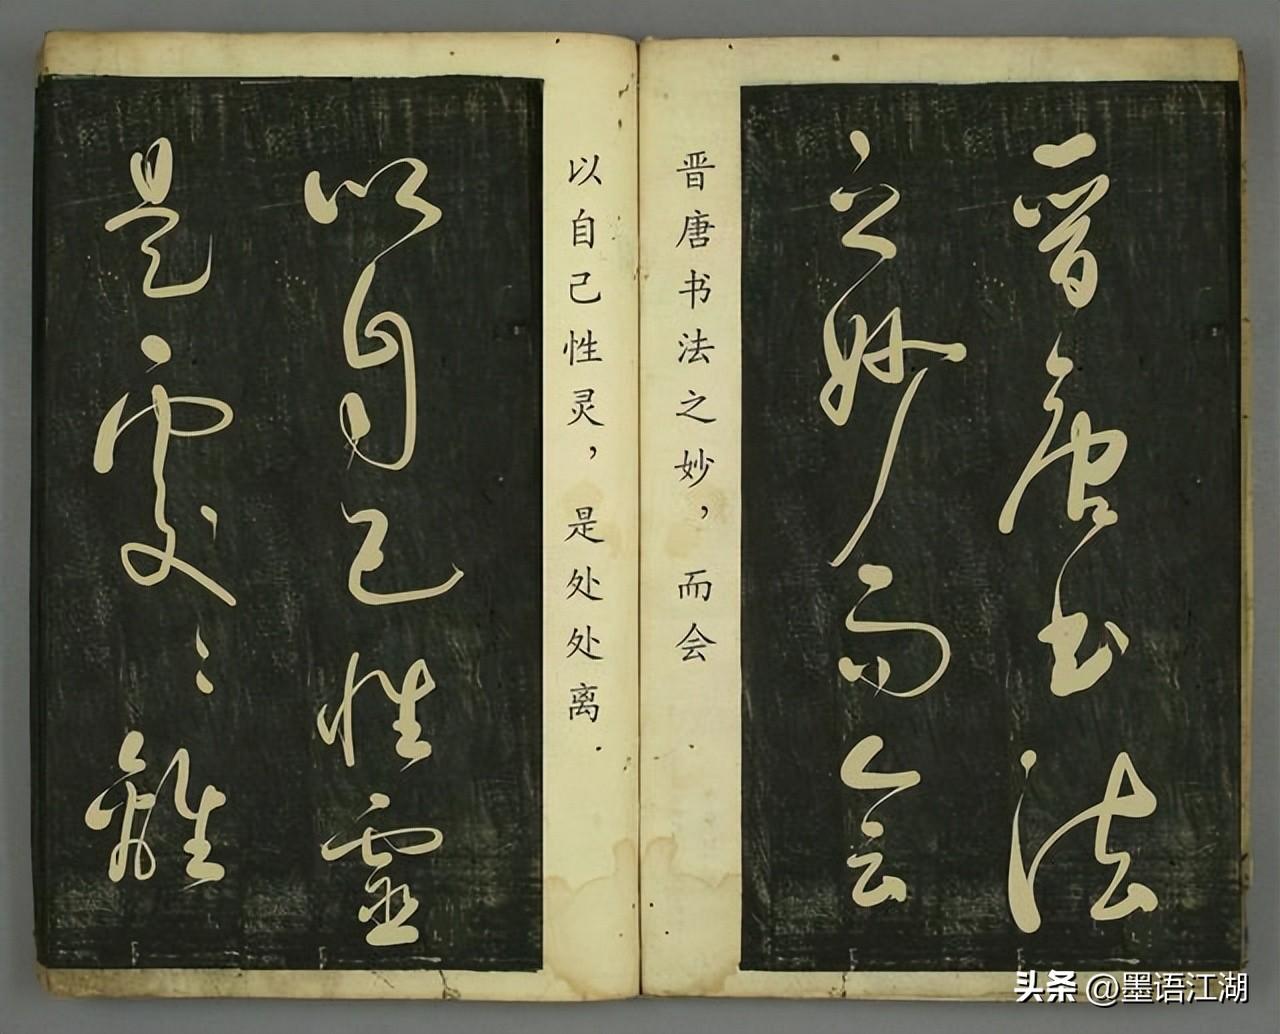 晉唐书法
之妙而会
晋唐书法之妙，而会
以自己性灵，是处处离
以自己性靈
是處〻離
头条 @墨语江湖